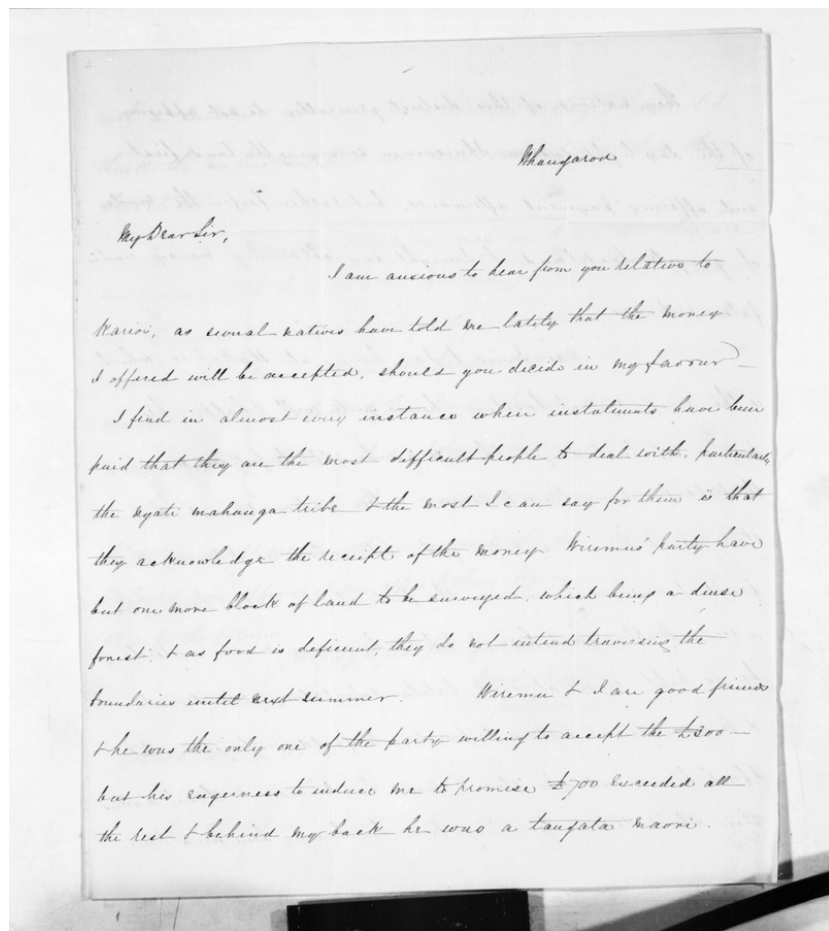 Whangaroa
My Dear Sir,
I am anxious to hear from you relative to
Karioi, as several natives have told me lately that the money
I offered will be accepted, should you decide in my favour —
I find in almost every instance when instalments have been
paid that they are the most difficult people to deal with, particularly
the Ngati mahanga tribe & the most I can say for them is that
they acknowledge the receipt of the money Wiremus' party have
but one more block of land to be surveyed, which being a dense
forest, & as food is deficient, they do not intend traversing the
boundaries until next summer. Wiremu & I are good friends
& he was the only one of the party willing to accept the £300 —
but his eagerness to induce me to promise £700 exceeded all
the rest & behind my back he was a tangata maori.